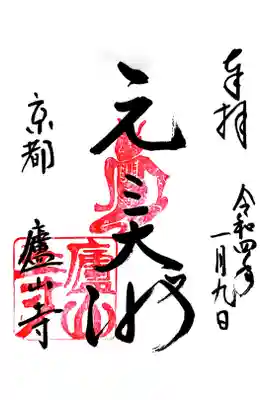 奉拝
令和四年
一月九日
元三大師
京都
廬山寺
廬山